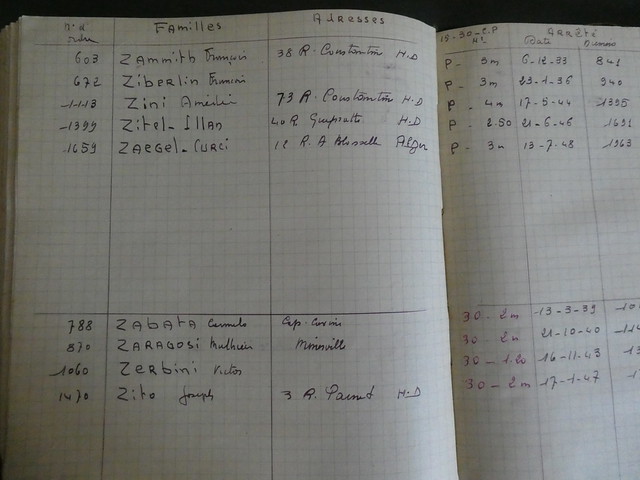 N° d'ordre Familles Adresses 15-30-C.P Arrêté
N° Date Numéro
603 Zammith François 38 R. Constantine H.D P - 3m 6-12-33 841
672 Ziberlin François P - 3m 23-1-36 940
1113 Zini Amédée 73 R. Constantine H.D P - 4m 17-5-44 1395
1399 Zitel-Illan 40 R. H.D P - 2.50 21-6-46 1691
1659 Zaegel-Curci 12 R. A Alger P - 3m 13-7-48 1963
788 Zabata Carmelo Cap. 30 - 2m 13-3-39
870 Zaragosi 30 - 2m 21-10-40
1060 Zerbini Victor 30 - 1.20 16-11-43
1470 Zito Joseph 3 R. H.D 30 - 2m 17-1-47